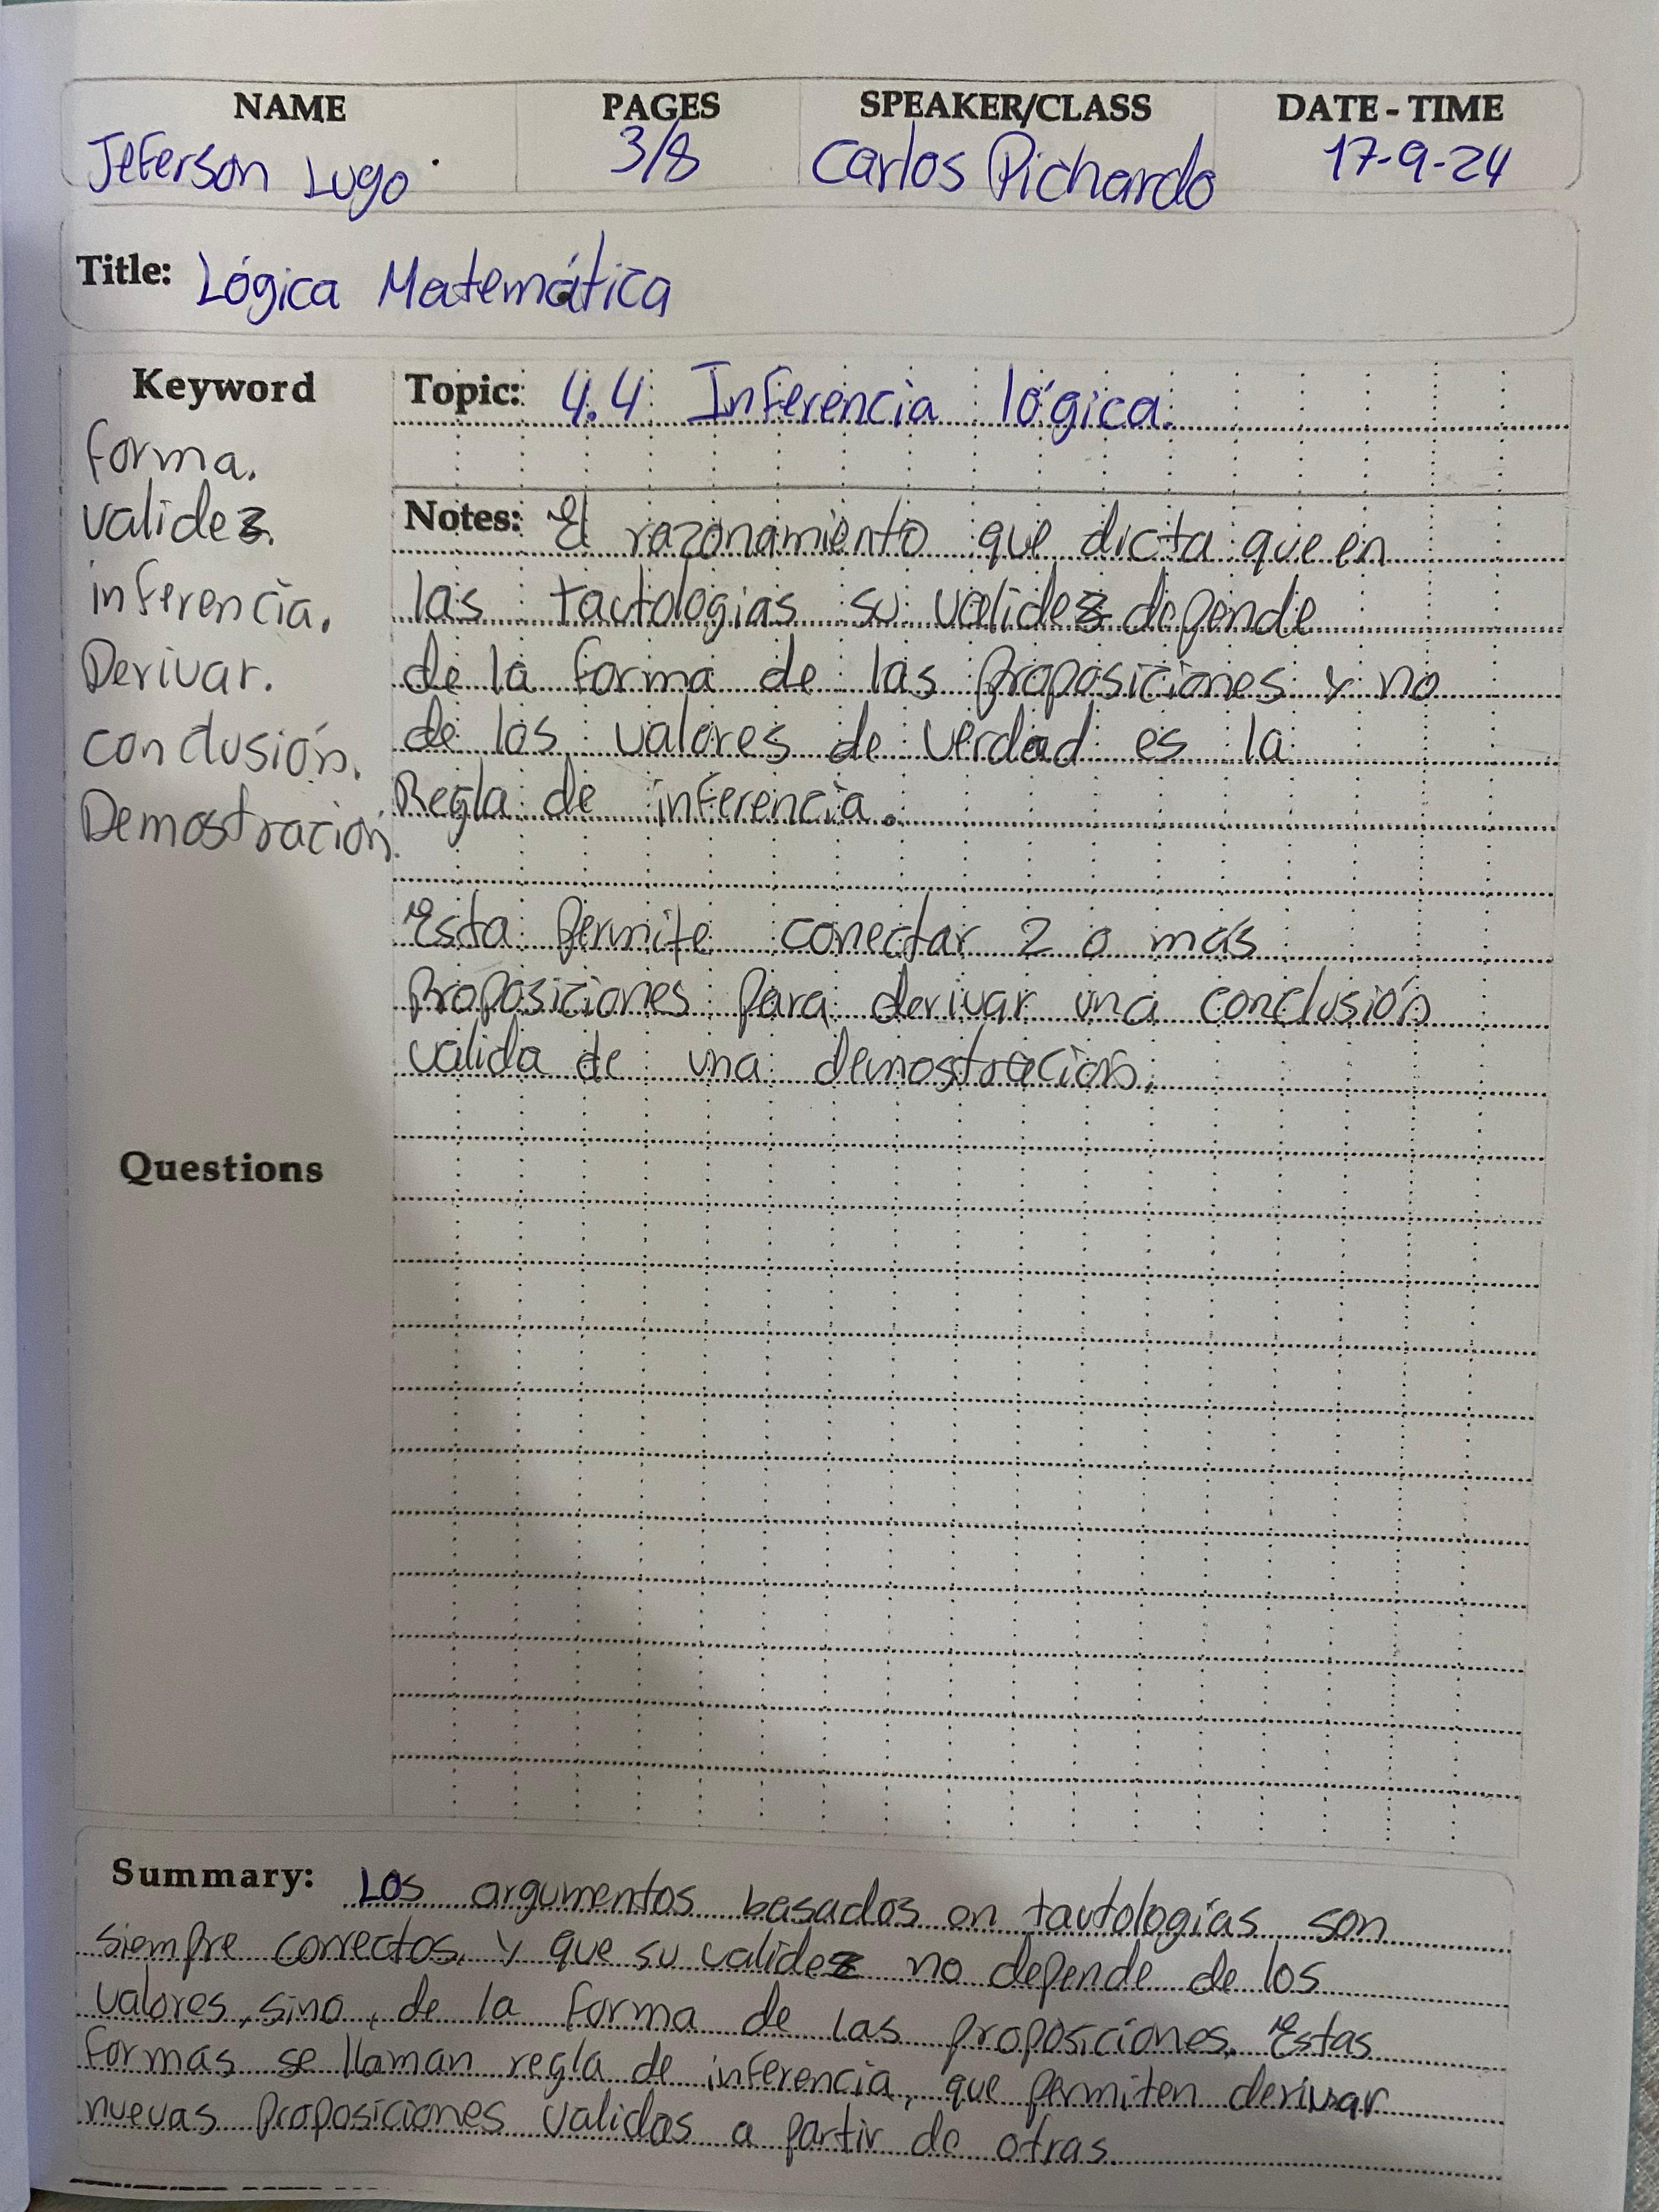 NAME PAGES SPEAKER/CLASS DATE - TIME
Jeferson Lugo 3/8 Carlos Pichardo 17-9-24
Title: Lógica Matemática
Keyword
forma.
validez.
inferencia.
Derivar.
conclusión.
Demostración.
Topic: 4.4 Inferencia lógica.
Notes: El razonamiento que dicta que en
las tautologias su validez depende
de la forma de las proposiciones y no
de los valores de verdad es la
Regla de inferencia.
Esta permite conectar 2 o mas
proposiciones para derivar una conclusión
valida de una demostración.
Questions
Summary: Los argumentos basados en tautologías son
siempre correctos, y que su validez no depende de los
valores, sino, de la forma de las proposiciones. Estas
formas se llaman regla de inferencia, que permiten derivar
nuevas proposiciones validas a partir de otras.